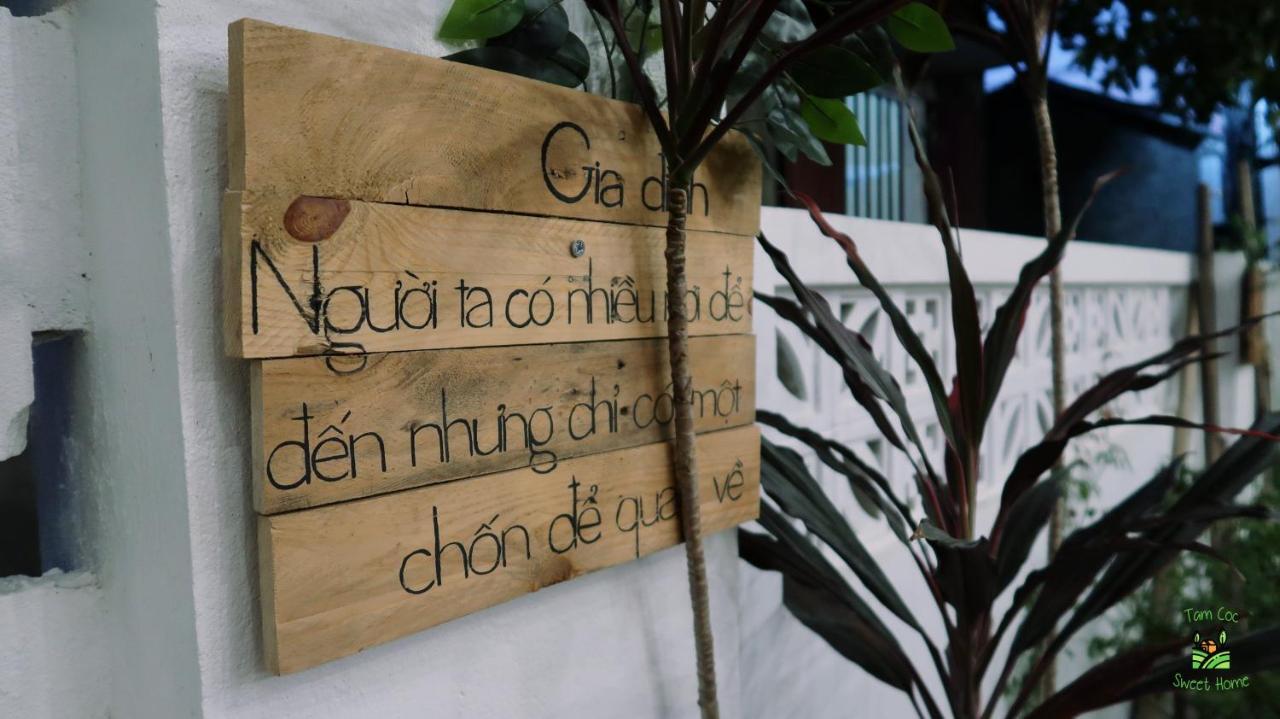 Gia đình
Người ta có nhiều nơi để
đến nhưng chỉ có một
chốn để quay về
Tam Coc
Sweet Home